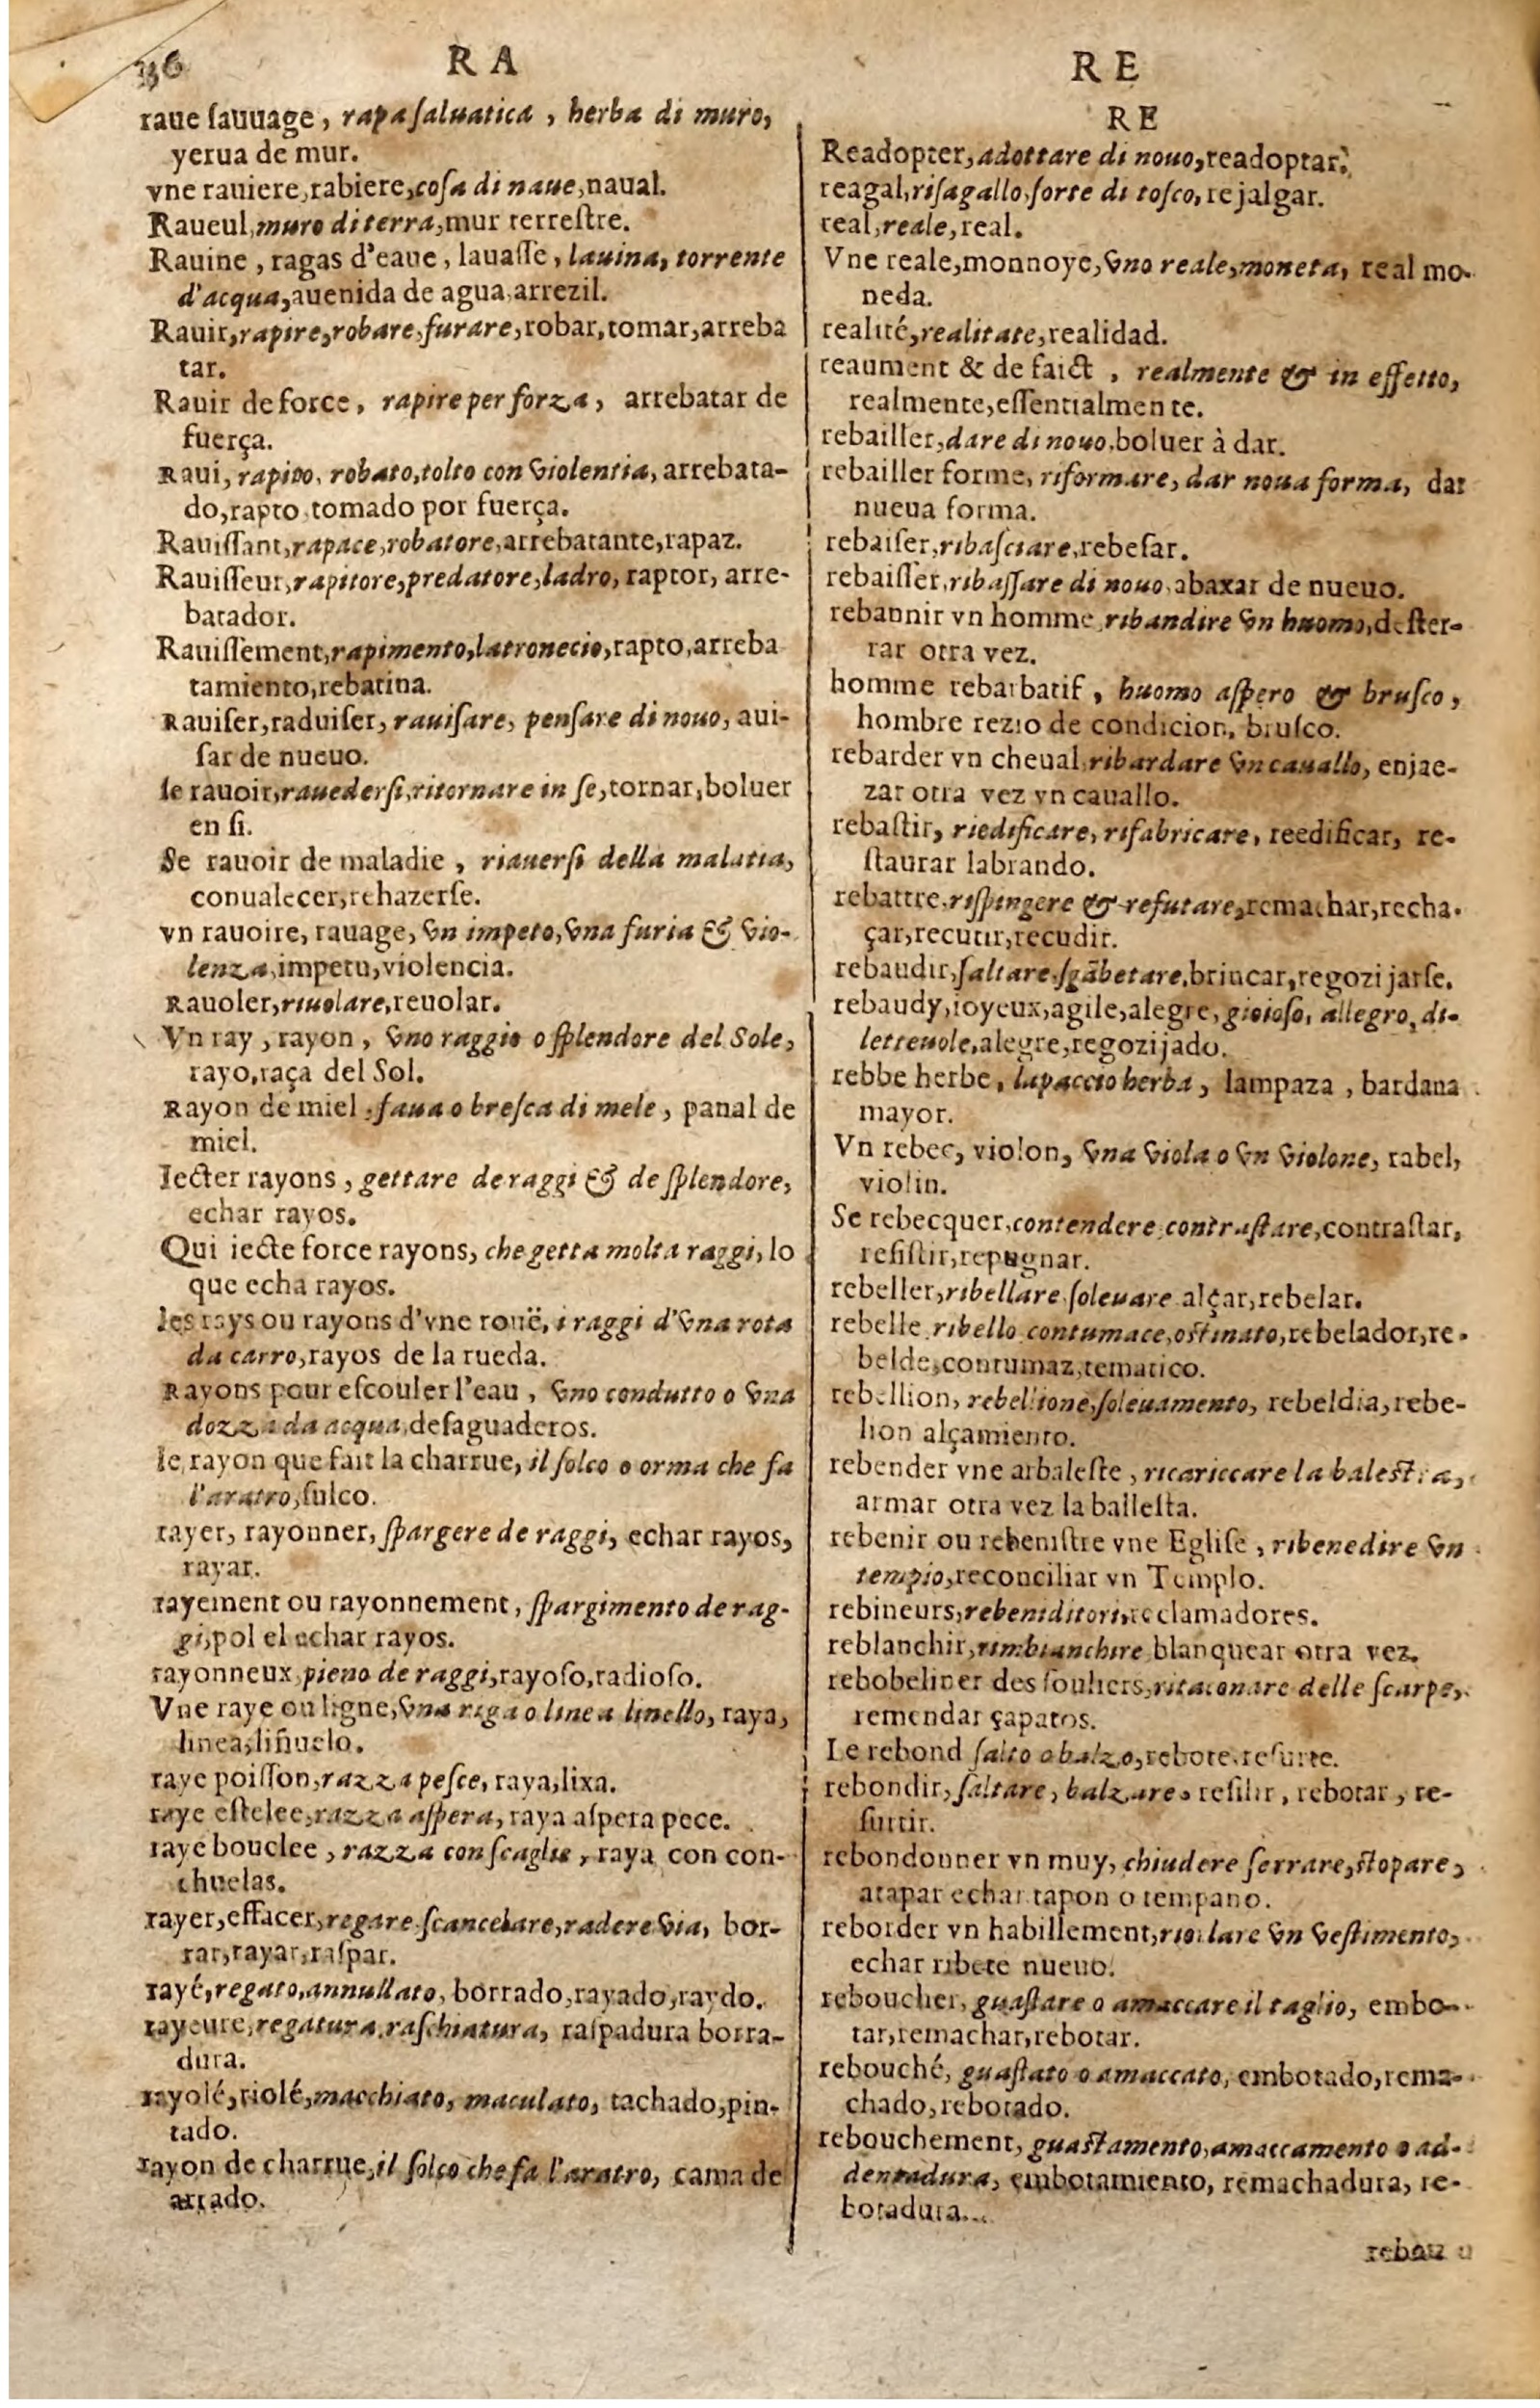 RA
raue ſauuage, rapa ſaluatica, herba di muro,
yerua de mur.
vne rauiere, rabiere, coſa di naue, naual.
Raueul, muro di terra, mur terreſtre.
Rauine, ragas d'eaue, lauaſſe, lauina, torrente
d'acqua, auenida de agua, arrezil.
Rauir, rapire, robare, furare, robar, tomar, arreba
tar.
Rauir de force, rapire per forza, arrebatar de
fuerça.
Raui, rapito, robato, tolto con violentia, arrebata-
do, rapto tomado por fuerça.
Rauiſſant, rapace, robatore, arrebatante, rapaz.
Rauiſſeur, rapitore, predatore, ladro, raptor, arre-
batador.
Rauiſſement, rapimento, latronecio, rapto, arreba
tamiento, rebatina.
Rauiſer, raduiſer, rauiſare, penſare di nouo, aui-
ſar de nueuo.
ſe rauoir, rauederſi, ritornare in ſe, tornar, boluer
en ſi.
Se rauoir de maladie, riauerſi della malatia,
conualecer, rehazerſe.
vn rauoire, rauage, vn impeto, vna furia & vio-
lenza, impetu, violencia.
Rauoler, riuolare, reuolar.
Vn ray, rayon, vno raggio o ſplendore del Sole,
rayo, raça del Sol.
Rayon de miel, faua o breſca di mele, panal de
miel.
Iecter rayons, gettare de raggi & de ſplendore,
echar rayos.
Qui iecte force rayons, che getta molta raggi, lo
que echa rayos.
les rays ou rayons d'vne rouë, i raggi d'vna rota
da carro, rayos de la rueda.
Rayons pour eſcouler l'eau, vno condutto o vna
dozza da acqua, deſaguaderos.
le rayon que fait la charrue, il ſolco o orma che fa
l'aratro, ſulco.
rayer, rayonner, ſpargere de raggi, echar rayos,
rayar.
rayement ou rayonnement, ſpargimento de rag-
gi, pol el echar rayos.
rayonneux, pieno de raggi, rayoſo, radioſo.
Vne raye ou ligne, vna riga o linea linello, raya,
linea, liñuelo.
raye poiſſon, razza peſce, raya, lixa.
raye eſtelee, razza aſpera, raya aſpera pece.
raye bouclee, razza con ſcaglie, raya con con-
chuelas.
rayer, effacer, regare, ſcancelare, radere via, bor-
rar, rayar, raſpar.
rayé, regato, annullato, borrado, rayado, raydo.
rayeure, regatura, raſchiatura, raſpadura borra-
dura.
rayolé, riolé, macchiato, maculato, tachado, pin-
tado.
rayon de charrue, il ſolco che fa l'aratro, cama de
arrado.
RE
RE
Readopter, adottare di nouo, readoptar.
reagal, riſagallo, ſorte di toſco, rejalgar.
real, reale, real.
Vne reale, monnoye, vno reale, moneta, real mo-
neda.
realité, realitate, realidad.
reaument & de faict, realmente & in effetto,
realmente, eſſentialmente.
rebailler, dare di nouo, boluer à dar.
rebailler forme, riformare, dar noua forma, dar
nueua forma.
rebaiſer, ribaſciare, rebeſar.
rebaiſſer, ribaſſare di nouo, abaxar de nueuo.
rebannir vn homme, ribandire vn huomo, deſter-
rar otra vez.
homme rebarbatif, huomo aſpero & bruſco,
hombre rezio de condicion, bruſco.
rebarder vn cheual, ribardare vn cauallo, enjae-
zar otra vez vn cauallo.
rebaſtir, riedificare, rifabricare, reedificar, re-
ſtaurar labrando.
rebattre, riſpingere & refutare, remachar, recha-
çar, recutir, recudir.
rebaudir, ſaltare, ſgābetare, brincar, regozijarſe.
rebaudy, ioyeux, agile, alegre, gioioſo, allegro, di-
letteuole, alegre, regozijado.
rebbe herbe, lapaccio herba, lampaza, bardana
mayor.
Vn rebec, violon, vna viola o vn violone, rabel,
violin.
Se rebecquer, contendere, contraſtare, contraſtar,
reſiſtir, repugnar.
rebeller, ribellare, ſoleuare, alçar, rebelar.
rebelle, ribello contumace, oſtinato, rebelador, re-
belde, contumaz, tematico.
rebellion, rebellione, ſoleuamento, rebeldia, rebe-
lion alçamiento.
rebender vne arbaleſte, ricariccare la baleſtra,
armar otra vez la balleſta.
rebenir ou rebeniſtre vne Egliſe, ribenedire vn
tempio, reconciliar vn Templo.
rebineurs, rebeniditori, reclamadores.
reblanchir, rimbianchire, blanquear otra vez.
rebobeliner des ſouliers, ritaconare delle ſcarpe,
remendar çapatos.
Le rebond ſalto o balzo, rebote, reſurte.
rebondir, ſaltare, balzare, reſilir, rebotar, re-
ſurtir.
rebondonner vn muy, chiudere ſerrare, ſtopare,
atapar echar tapon o tempano.
reborder vn habillement, riorlare vn veſtimento,
echar ribete nueuo.
reboucher, guaſtare o amaccare il taglio, embo-
tar, remachar, rebotar.
rebouché, guaſtato o amaccato, embotado, rema-
chado, rebotado.
rebouchement, guaſtamento, amaccamento o ad-
dentadura, embotamiento, remachadura, re-
botadura.